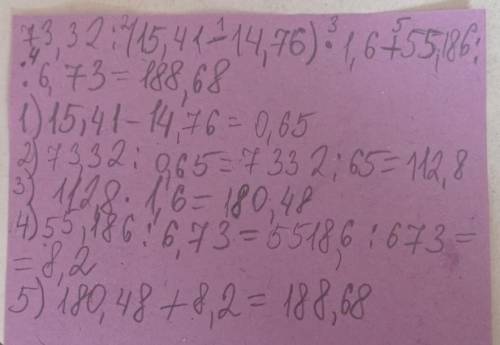 73,32:(15,41-14,76)·1,6+55,186:
:6,73=188,68
1) 15,41-14,76=0,65
2) 73,32:0,65=7332:65=112,8
3) 112,8·1,6=180,48
4) 55,186:6,73=5518,6:673=
=8,2
5) 180,48+8,2=188,68